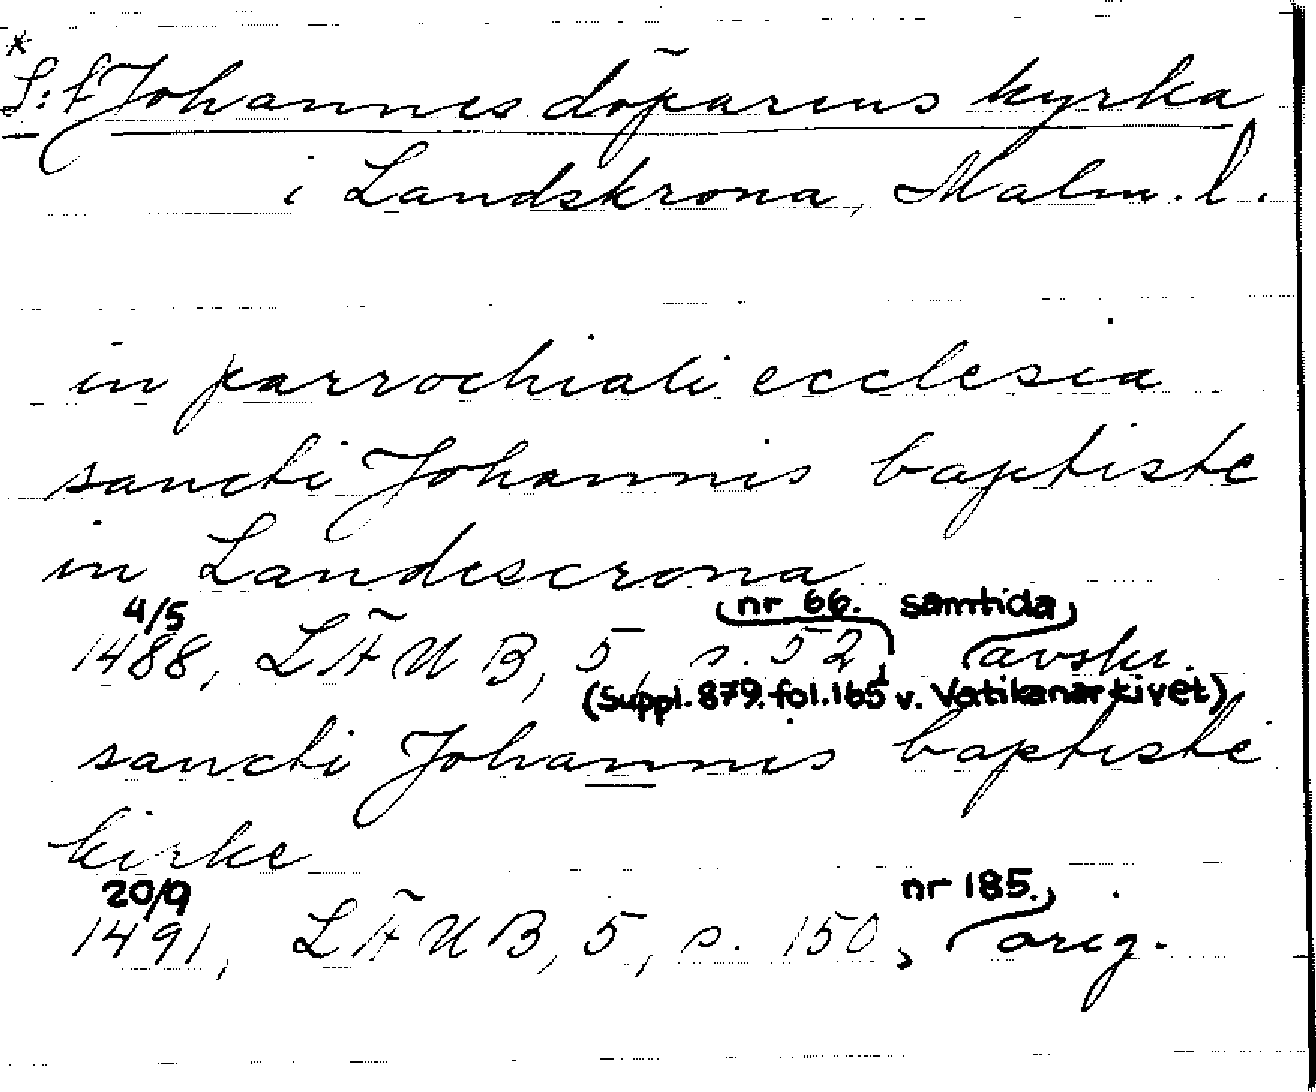 *
S:t Johannes döparens kyrka
i Landskrona, Malm. l.
in parrochiali ecclesia
sancti Johannis baptiste
in Landescrona
4/5 nr 66. samtida
1488, LÄUB, 5, s. 52 avskr.
(Suppl. 879. fol. 165 v. Vatikanarkivet)
sancti Johannis baptiste
kirke
20/9 nr 185.
1491, LÄUB, 5, s. 150, orig.